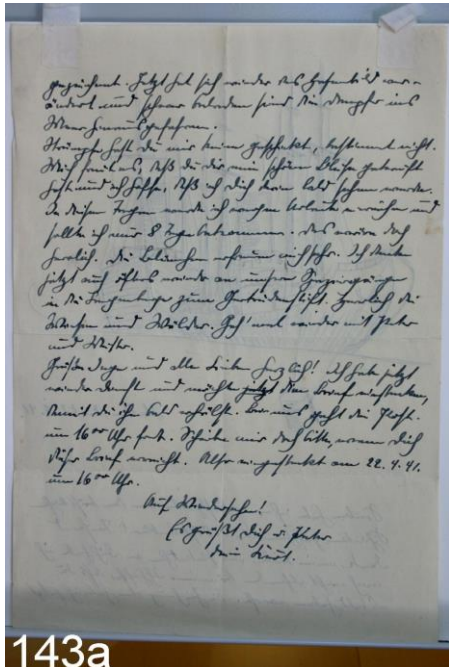 gezeichnet. Jetzt hat sich wieder das Hafenbild ver-
ändert und schwer beladen sind die Dampfer ins
Meer hinausgefahren.
Strümpfe hast du mir keine geschickt, bestimmt nicht.
Mich freut es, daß du dir eine schöne Bluse gekauft
hast und ich hoffe, daß ich dich darin bald sehen werde.
In diesen Tagen werde ich wegen Urlaub und
sollte ich nur 8 Tage bekommen. Das wäre doch
herrlich. Die Blümchen erfreuen mich sehr. Ich denke
jetzt auch öfters wieder an unsere Spaziergänge
in die zum Herrlich die
Wiesen und Wälder. Geh' mal wieder mit Peter
und
Grüße und alle Lieben herzlich! Ich habe jetzt
wieder Dienst und möchte jetzt den Brief einstecken,
damit du ihn bald erhältst. Bei uns geht die Post
um 16°° Uhr fort. Schreibe mir doch bitte, wann dich
dieser Brief erreicht. Also eingesteckt am 22.4.41.
um 16°° Uhr.
Auf Wiedersehn!
Es grüßt dich u. Peter
dein Kurt.
143a